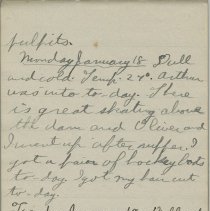 pulpits.
Monday January 18 Dull
and cold. Temp. 24°. Arthur
was into to-day. There
is great skating above
the dam and Oliver and
I went up after supper. I
got a pair of hockey boots
to-day. I got my hair cut
to-day.